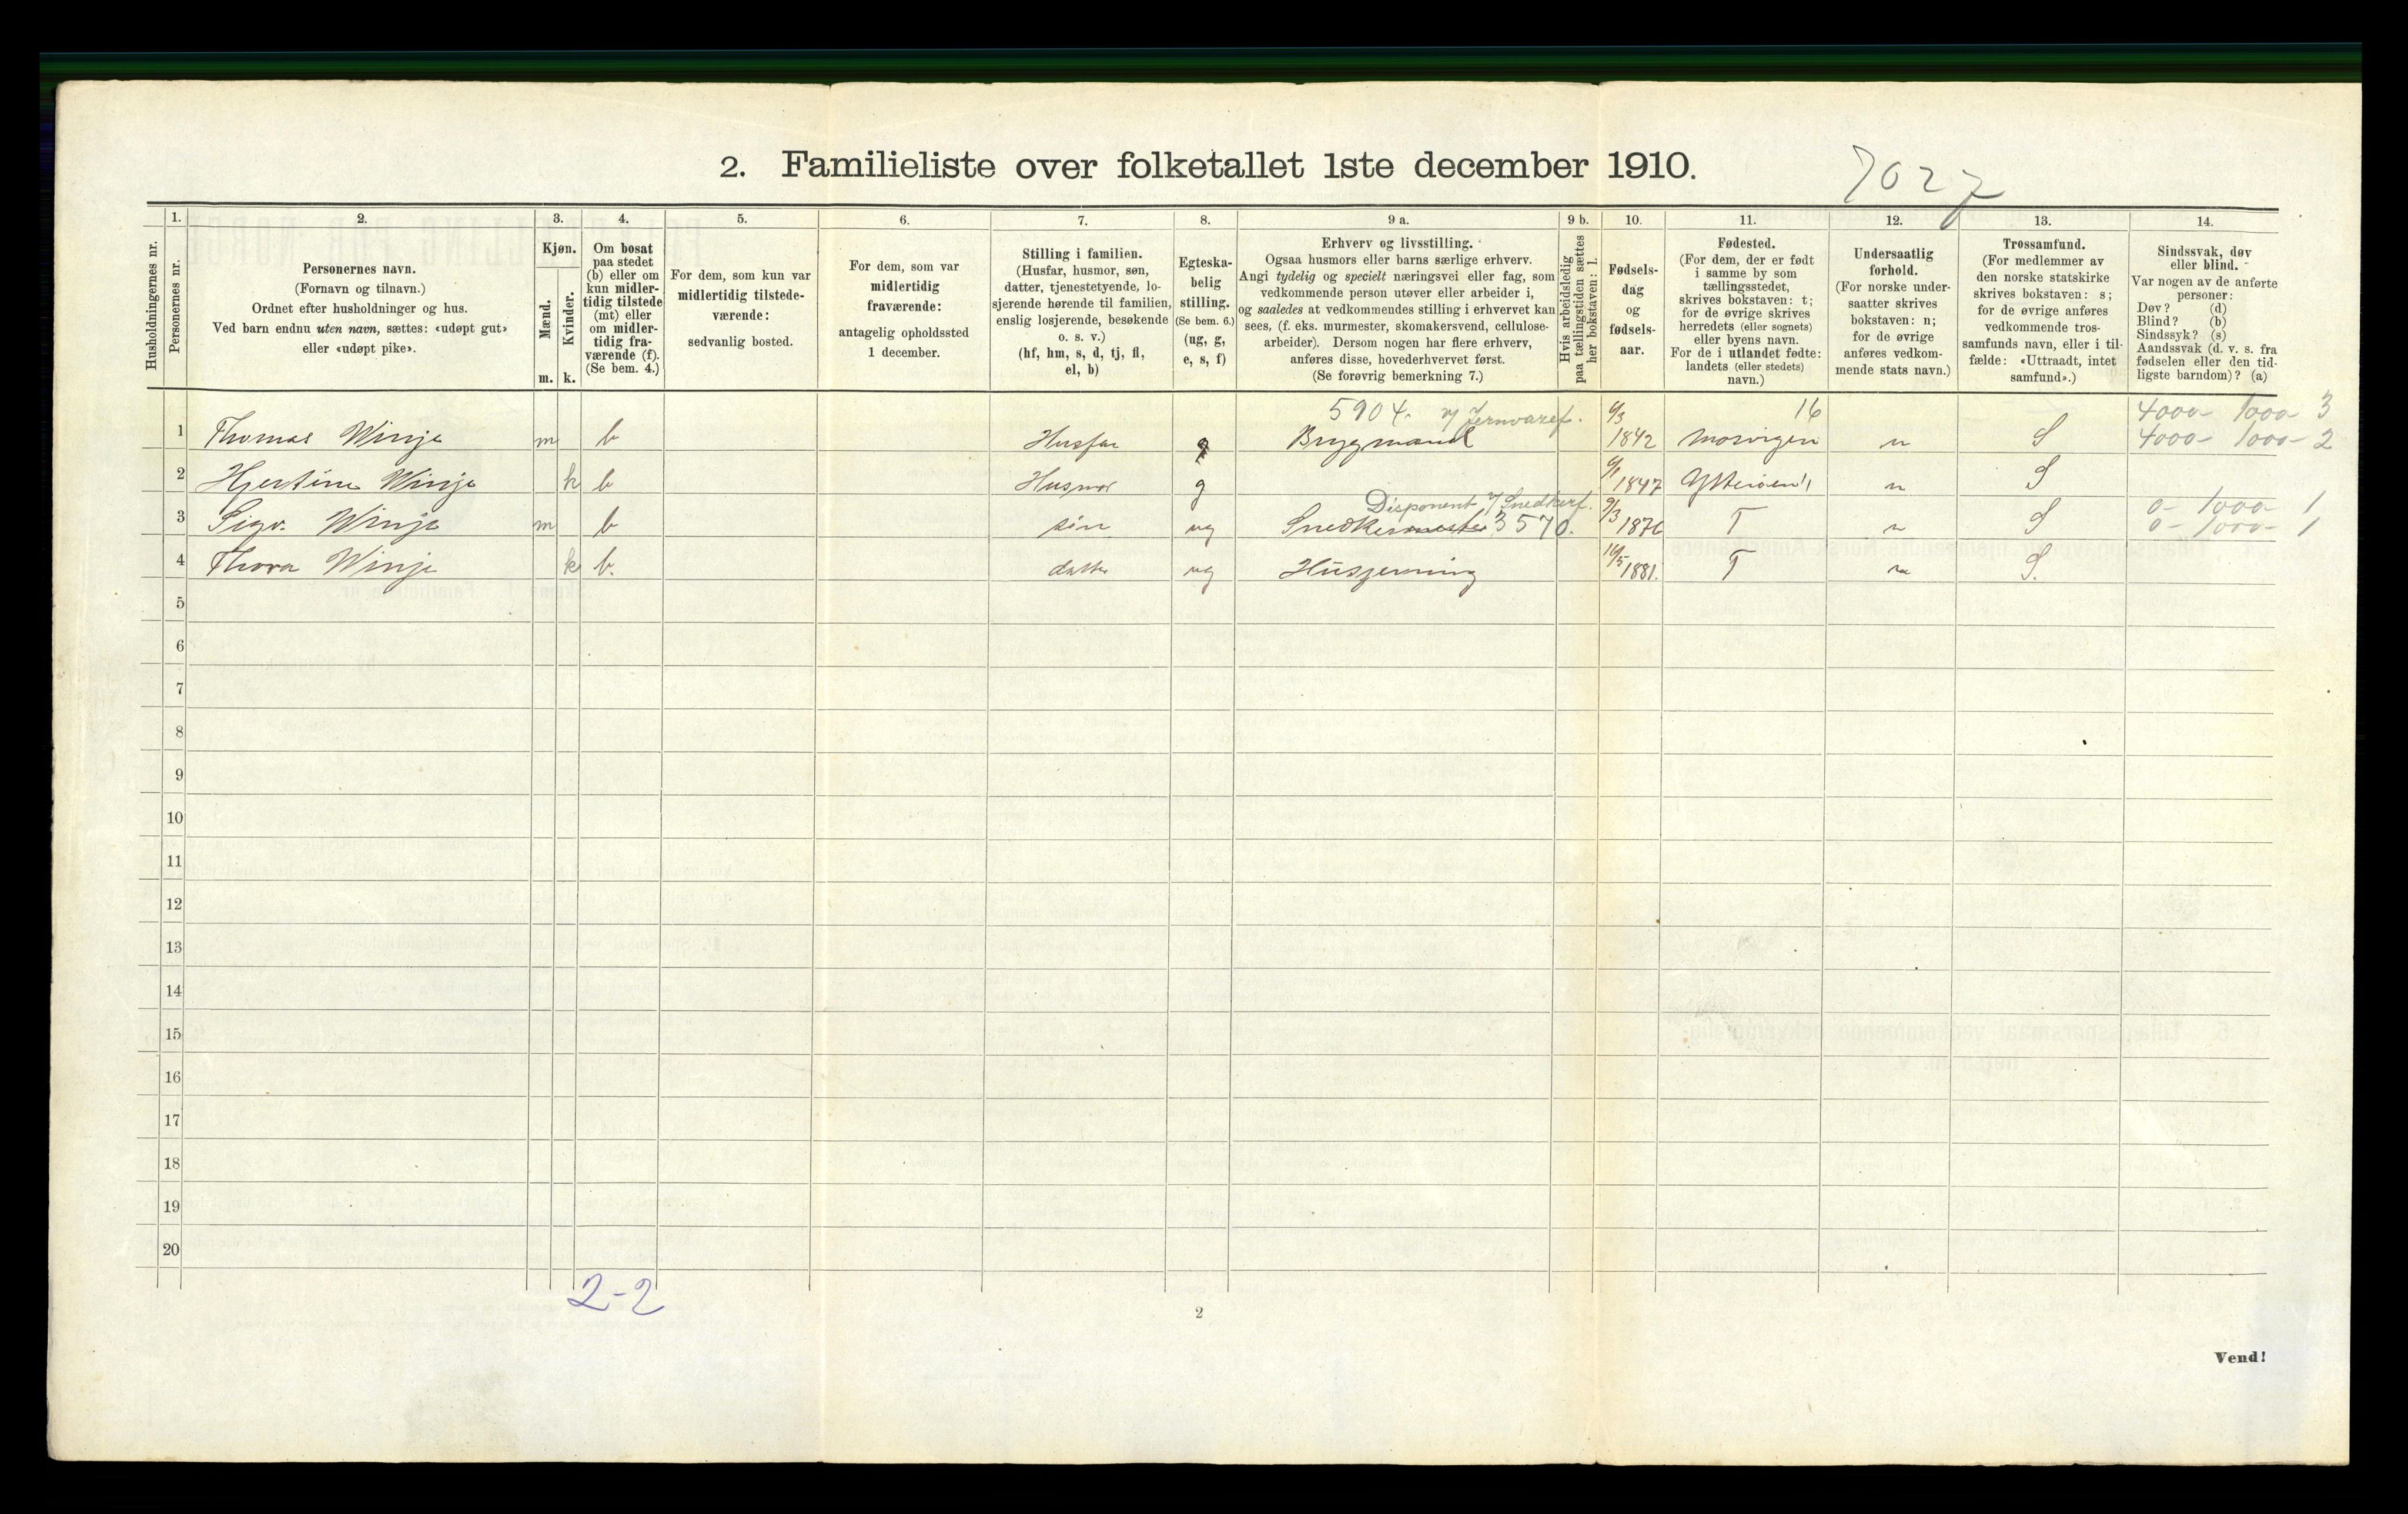 2. Familieliste over folketallet 1ste december 1910.
7027
1. 2. 3. 4. 5. 6. 7. 8. 9 a. 9 b. 10. 11. 12. 13. 14.
Husholdningernes nr.
Personernes nr.
Personernes navn.
(Fornavn og tilnavn.)
Ordnet efter husholdninger og hus.
Ved barn endnu uten navn, sættes: «udøpt gut»
eller «udøpt pike».
Kjøn.
Mænd.
Kvinder.
m. k.
Om bosat
paa stedet
(b) eller om
kun midler-
tidig tilstede
(mt) eller
om midler-
tidig fra-
værende (f).
(Se bem. 4.)
For dem, som kun var
midlertidig tilstede-
værende:
sedvanlig bosted.
For dem, som var
midlertidig
fraværende:
antagelig opholdssted
1 december.
Stilling i familien.
(Husfar, husmor, søn,
datter, tjenestetyende, lo-
sjerende hørende til familien,
enslig losjerende, besøkende
o. s. v.)
(hf, hm, s, d, tj, fl,
el, b)
Egteska-
belig
stilling.
(Se bem. 6.)
(ug, g,
e, s, f)
Erhverv og livsstilling.
Ogsaa husmors eller barns særlige erhverv.
Angi tydelig og specielt næringsvei eller fag, som
vedkommende person utøver eller arbeider i,
og saaledes at vedkommendes stilling i erhvervet kan
sees, (f. eks. murmester, skomakersvend, cellulose-
arbeider). Dersom nogen har flere erhverv,
anføres disse, hovederhvervet først.
(Se forøvrig bemerkning 7.)
Hvis arbeidsledig
paa tællingstiden sættes
her bokstaven: l.
Fødsels-
dag
og
fødsels-
aar.
Fødested.
(For dem, der er født
i samme by som
tællingsstedet,
skrives bokstaven: t;
for de øvrige skrives
herredets (eller sognets)
eller byens navn.
For de i utlandet fødte:
landets (eller stedets)
navn.)
Undersaatlig
forhold.
(For norske under-
saatter skrives
bokstaven: n;
for de øvrige
anføres vedkom-
mende stats navn.)
Trossamfund.
(For medlemmer av
den norske statskirke
skrives bokstaven: s;
for de øvrige anføres
vedkommende tros-
samfunds navn, eller i til-
fælde: «Uttraadt, intet
samfund».)
Sindssvak, døv
eller blind.
Var nogen av de anførte
personer:
Døv? (d)
Blind? (b)
Sindssyk? (s)
Aandssvak (d. v. s. fra
fødselen eller den tid-
ligste barndom)? (a)
5904. v/ Jernvaref. 6/3 16 4000- 1000- 3
1 Thomas Winje m b Husfar g Bryggmand 1842 Mosvigen n S 4000- 1000- 2
2 Hjertine Winje k b Husmor g 6/1 1847 Ytterøen n S
Disponent v/ Snedkerf. 0- 1000- 1
3 Sigv. Winje m b søn ug Snedkermester 3570. 9/3 1876 T n S 0- 1000- 1
4 Thora Winje k b. datter ug Husgerning 16/5 1881. T n S.
5
6
7
8
9
10
11
12
13
14
15
16
17
18
19
20
2-2
2
Vend!